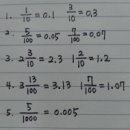 1. 1/10 = 0.1 3/10 = 0.3
2. 5/100 = 0.05 7/100 = 0.07
3. 2 3/10 = 2.3 1 2/10 = 1.2
4. 3 13/100 = 3.13 1 7/100 = 1.07
5. 5/1000 = 0.005